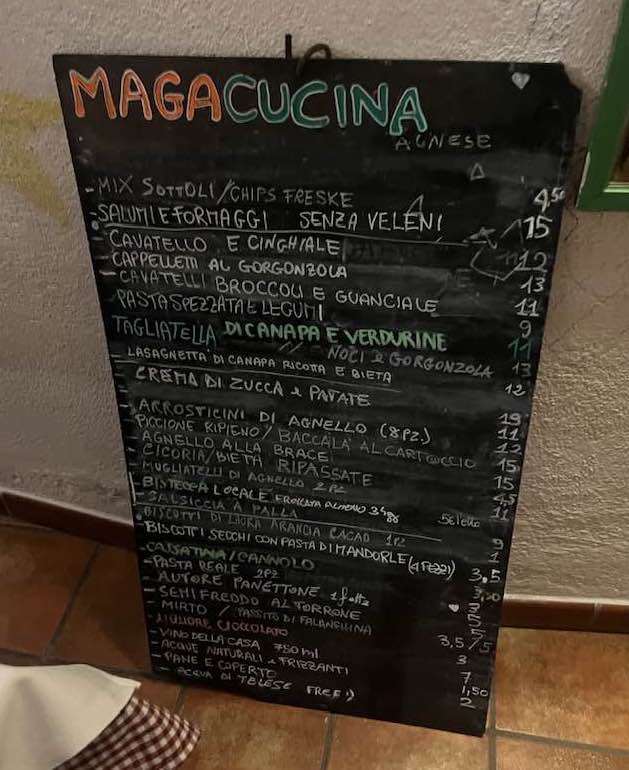 MAGACUCINA
AGNESE
- MIX SOTTOLI/CHIPS FRESKE 4,50
- SALUMI E FORMAGGI SENZA VELENI 15
- CAVATELLO E CINGHIALE 12
- CAPPELLETTI AL GORGONZOLA 13
- CAVATELLI BROCCOLI E GUANCIALE 11
- PASTA SPEZZATA E LEGUMI 9
TAGLIATELLA DI CANAPA E VERDURINE 11
// NOCI e GORGONZOLA 13
- LASAGNETTA DI CANAPA RICOTTA E BIETA 12
- CREMA DI ZUCCA e PATATE
- ARROSTICINI DI AGNELLO (8PZ.) 11
- PICCIONE RIPIENO/BACCALÀ AL CARTOCCIO
- AGNELLO ALLA BRACE 15
- CICORIA/BIETA RIPASSATE
- MUGLIATELLI DI AGNELLO 2PZ
- BISTECCA LOCALE FROLLATA ALMENO 5€ l'etto
- SALSICCIA A PALLA
- BISCOTTI DI LAURA ARANCIA CACAO 1PZ
- BISCOTTI SECCHI CON PASTA DI MANDORLE (4 PEZZI)
- CASSATINA/CANNOLO 3,5
- PASTA REALE 2PZ
- AUTORE PANETTONE 1 fetta
- SEMIFREDDO AL TORRONE 5
- MIRTO / PASSITO DI FALANGHINA 3,5/5
LIQUORE CIOCCOLATO 3
- VINO DELLA CASA 750ml 7
- ACQUE NATURALI e FRIZZANTI 1,50
- PANE E COPERTO 2
- ACQUA DI TELESE FREE :)